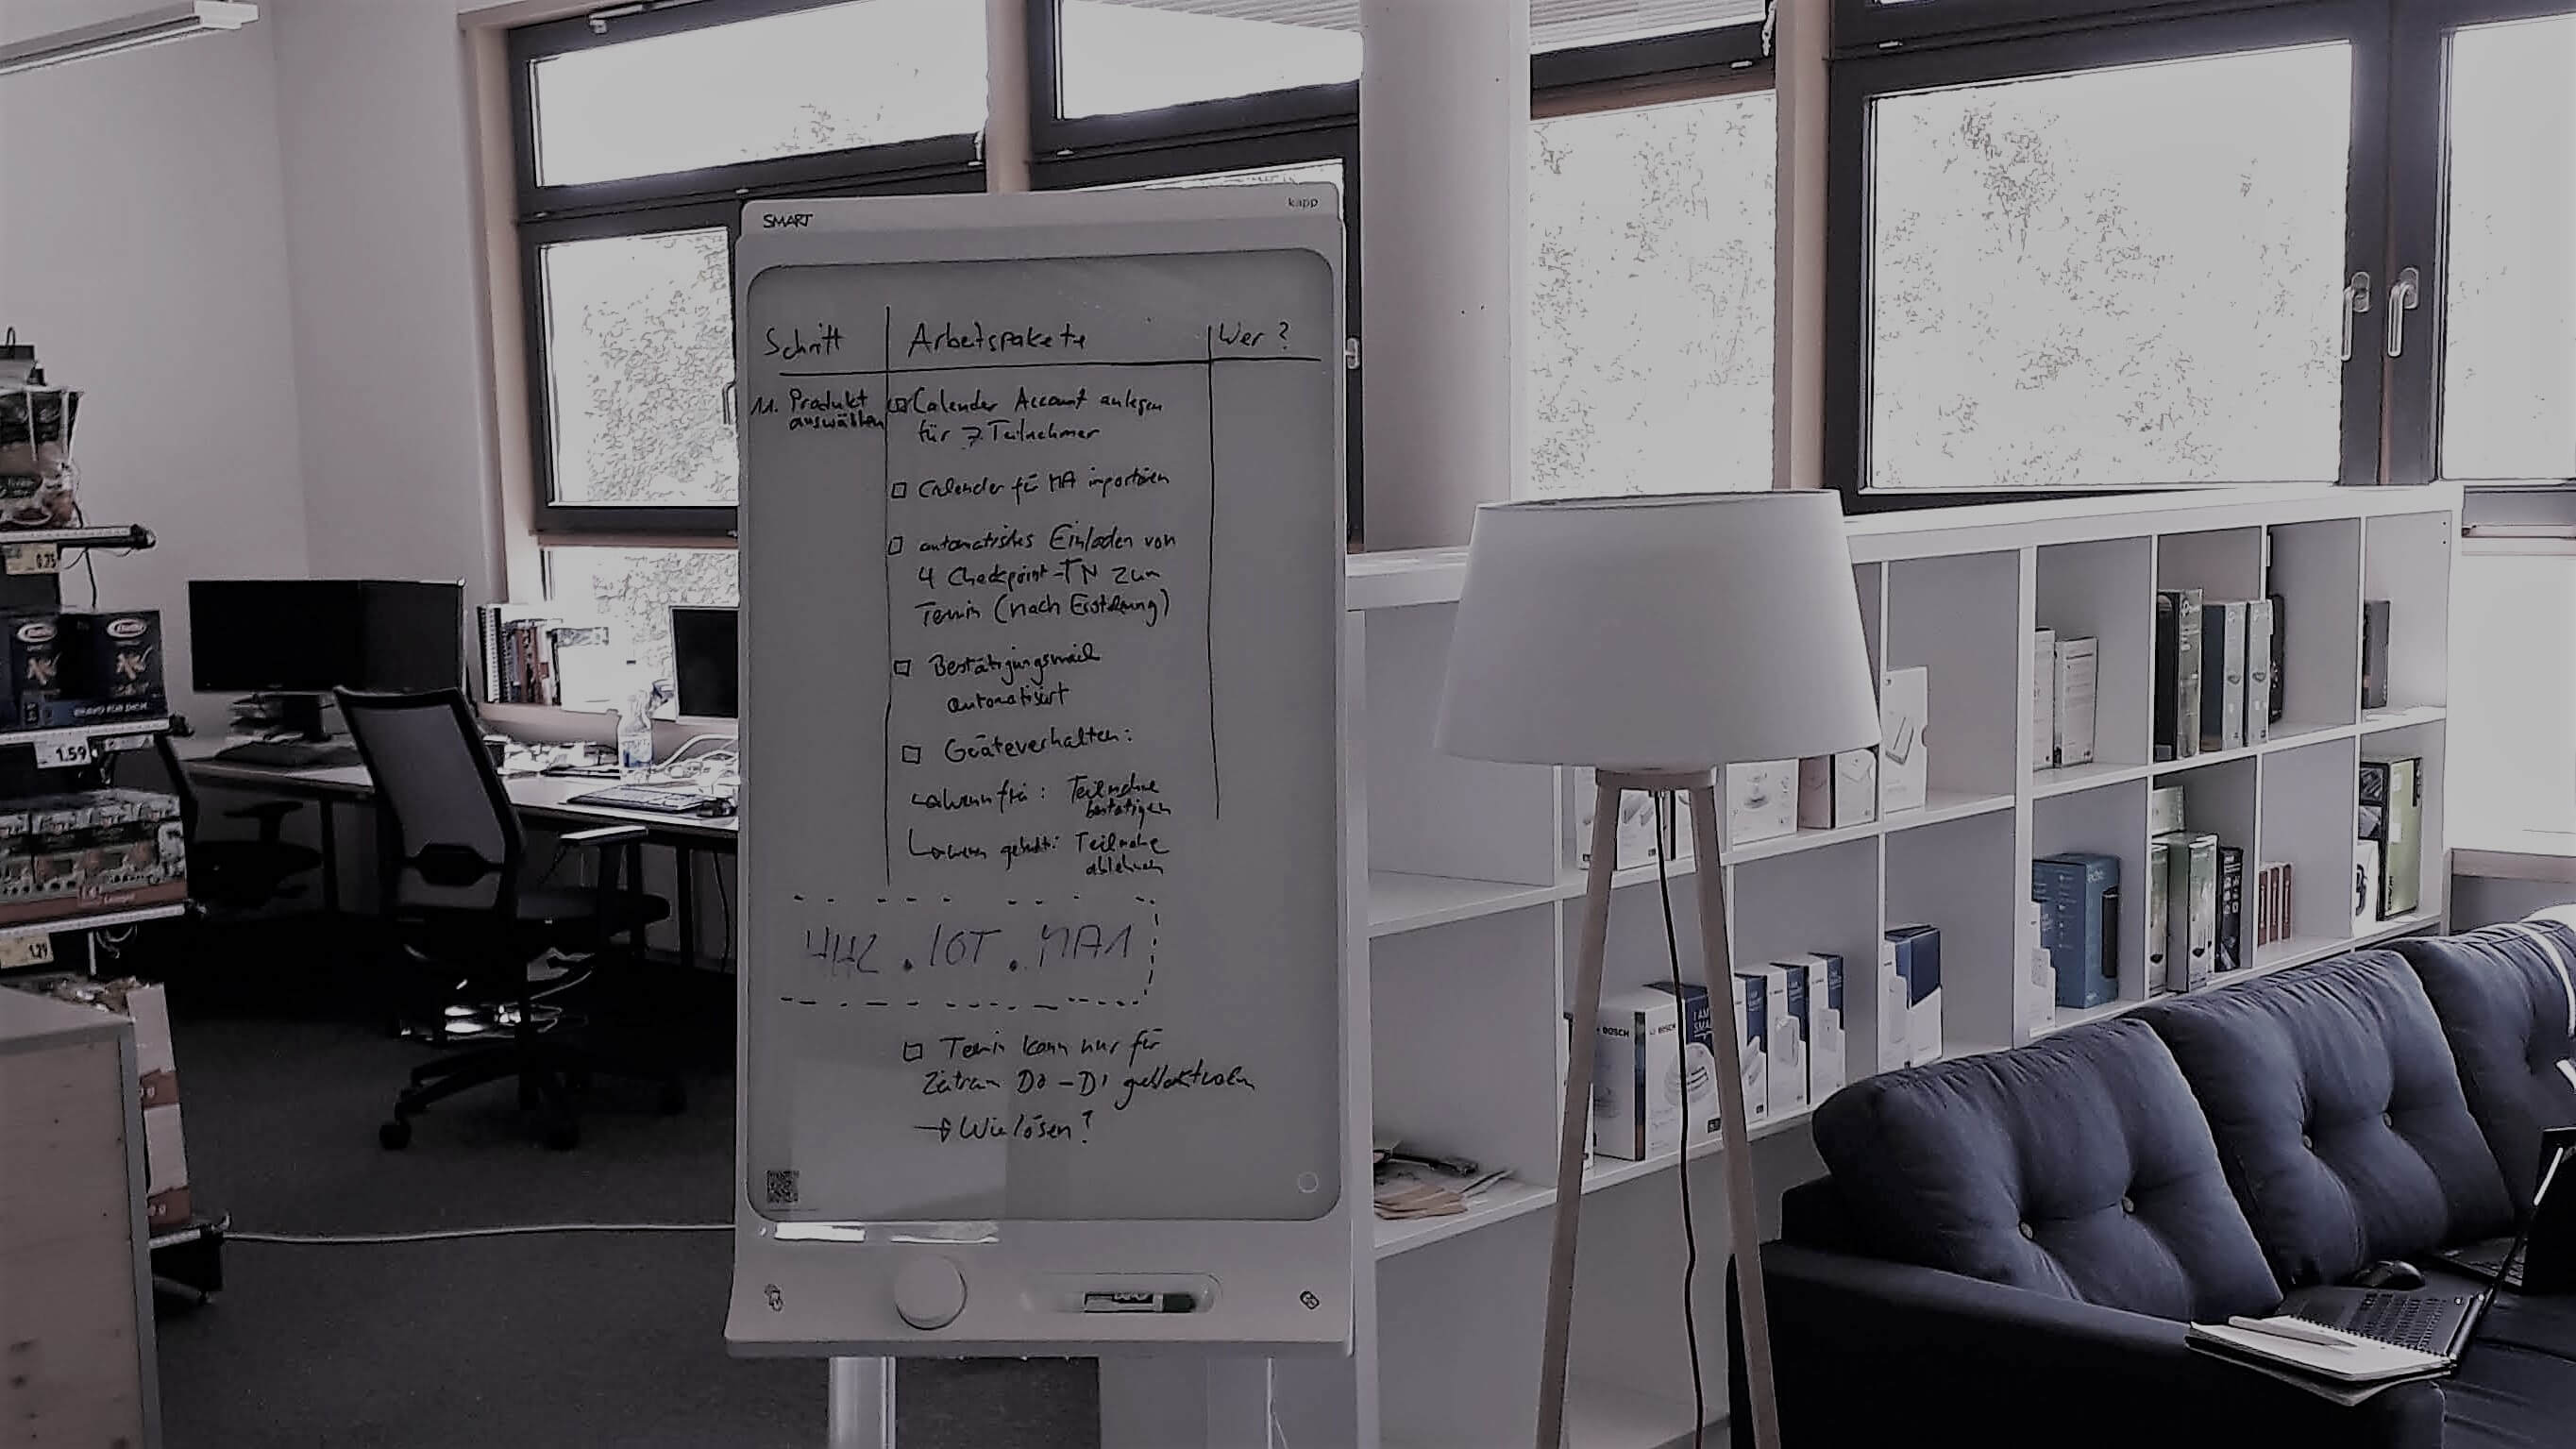 SMART kapp
Schritt Arbeitspakete Wer?
11. Produkt Calender Account anlegen
auswählen für 7 Teilnehmer
Calender für MA importieren
automatisches Einladen von
4 Checkpoint-TN zum
Termin (nach Erstellung)
Bestätigungsmail
automatisiert
Geräteverhalten:
wenn frei: Teilnahme
bestätigen
wenn gebucht: Teilnahme
ablehnen
HHZ.IOT.MA1
Termin kann nur für
Zeitraum Do - Di
Wie lösen?
0.75
1.59
1.29
BOSCH
BOSCH